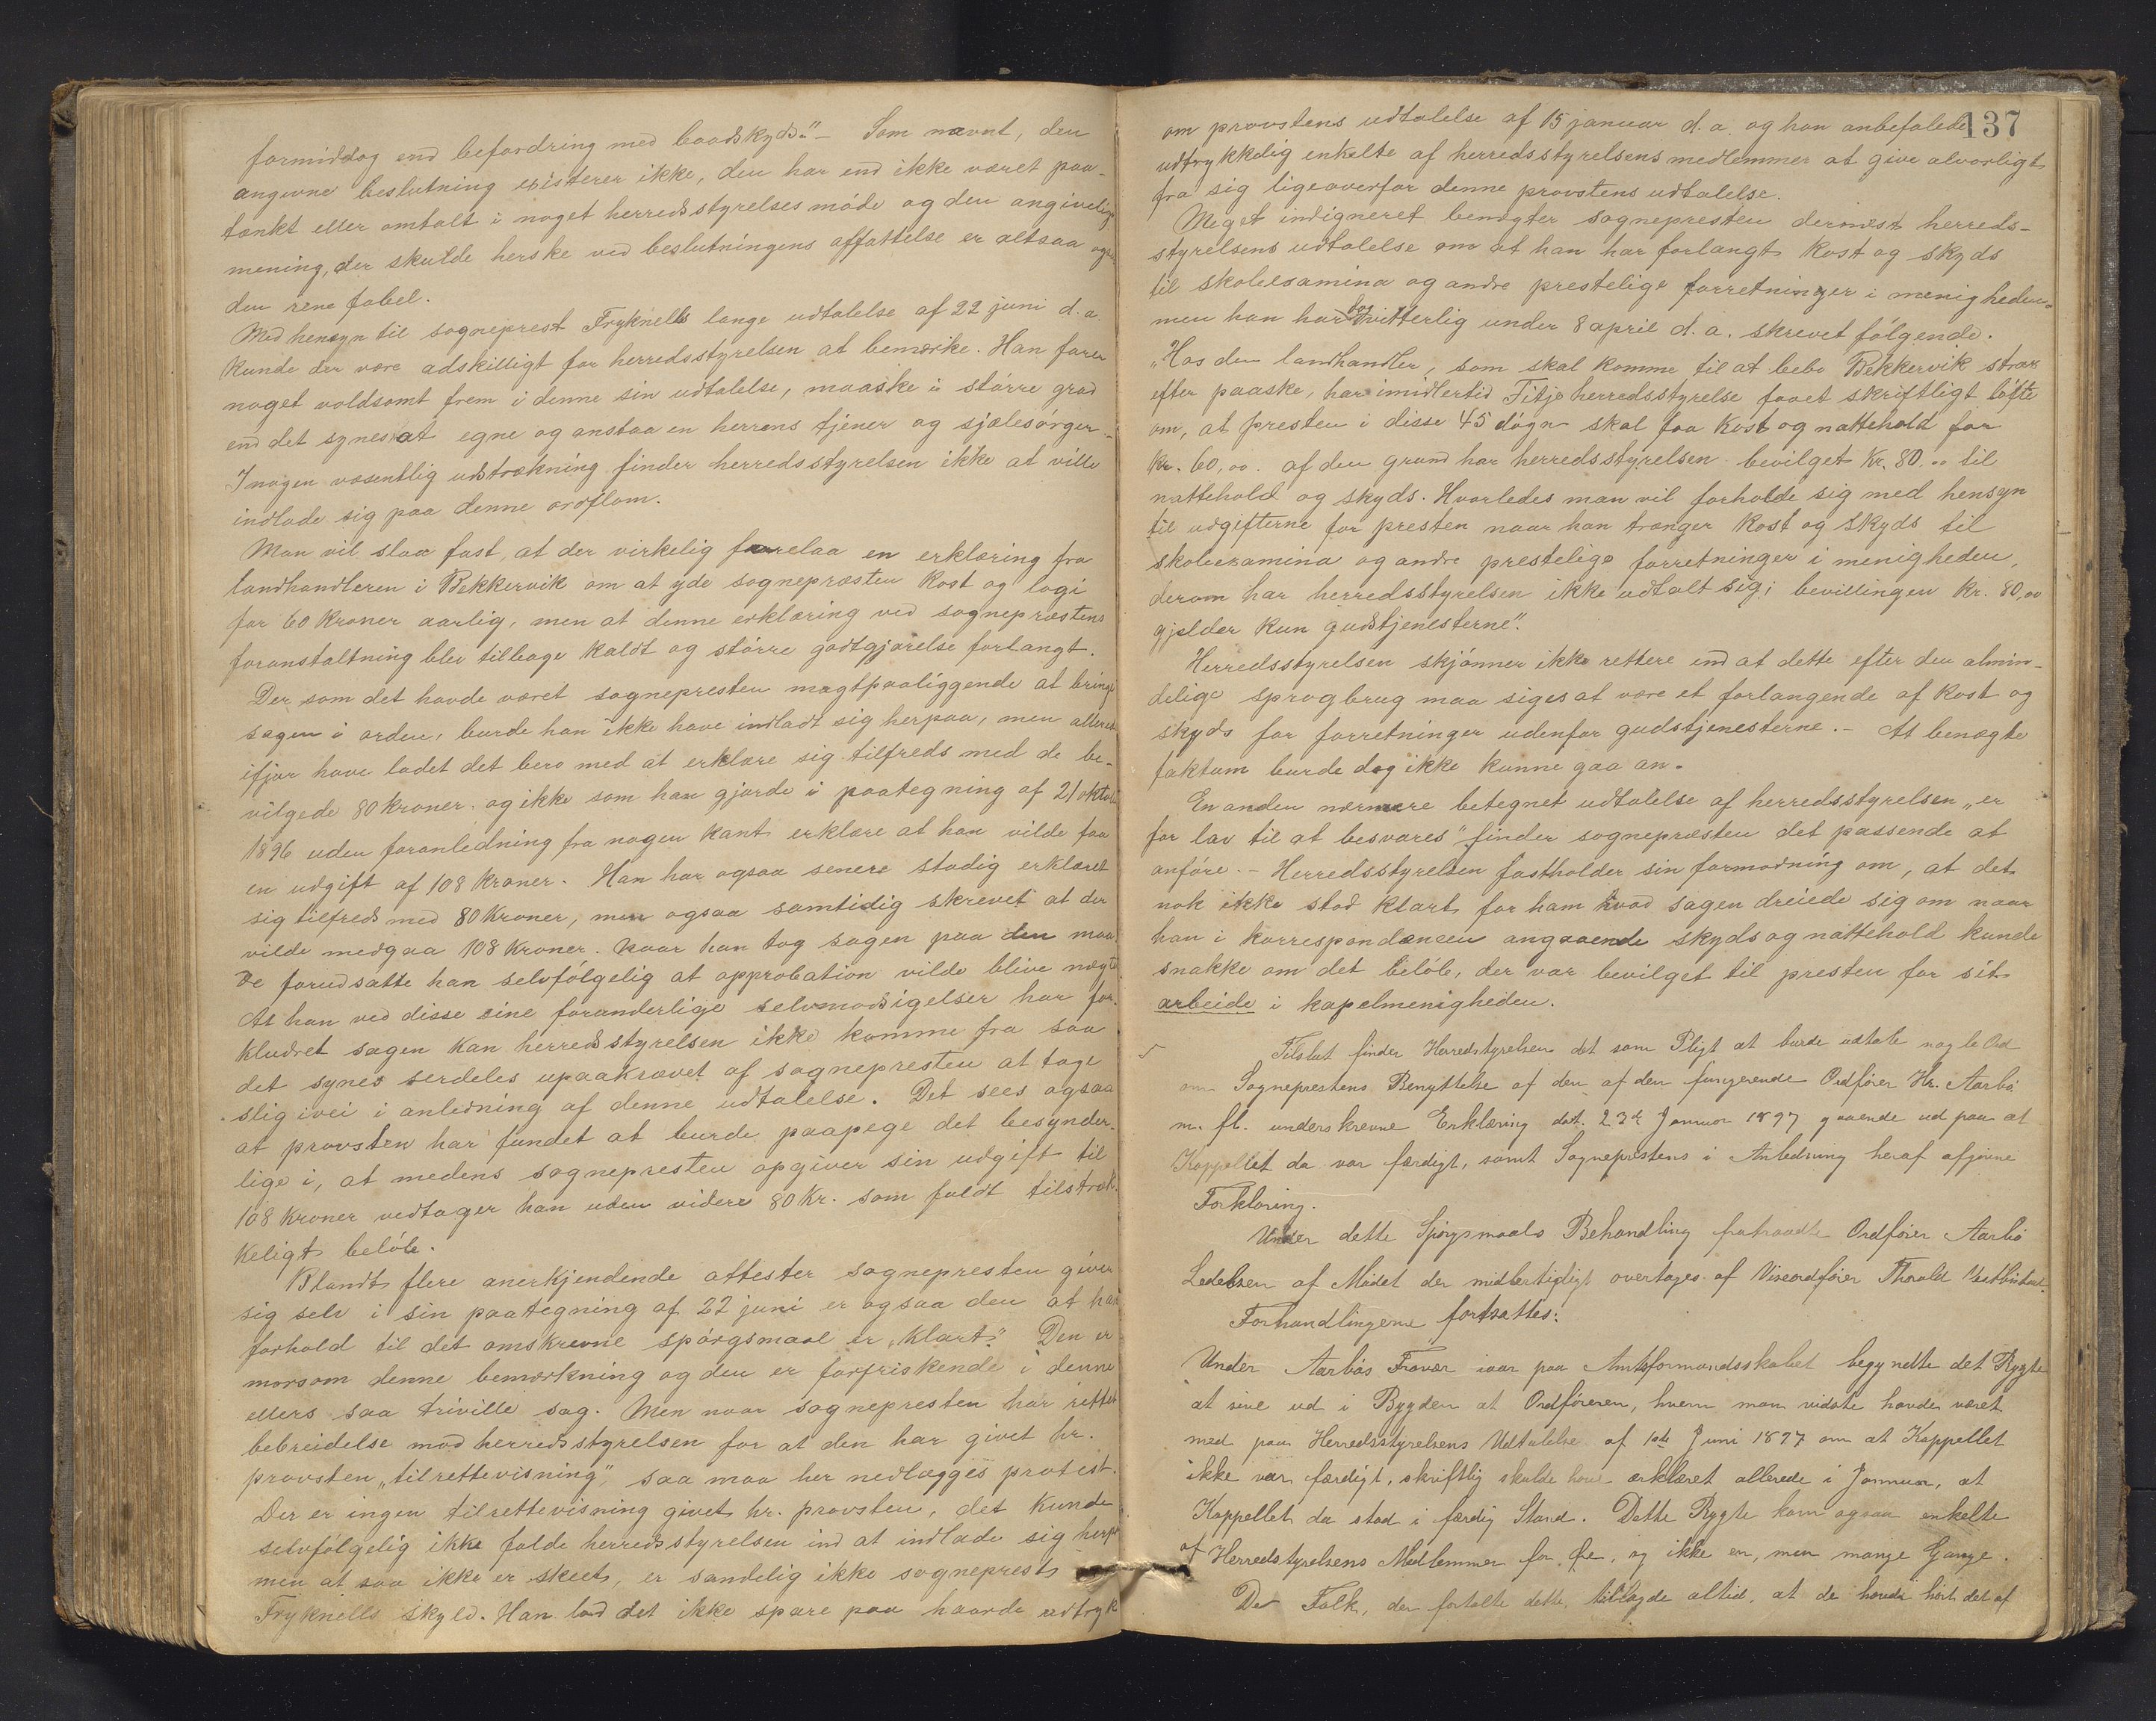 formiddag end befordring med baadskyds." - Som nævnt, den
angivne beslutning existerer ikke, den har end ikke været paa-
tænkt eller omtalt i noget herredsstyrelsesmöde og den angivelige
mening, der skulde herske ved beslutningens affattelse er altsaa ogsaa
den rene fabel.
Med hensyn til sogneprest Fryknells lange udtalelse af 22 juni d. a.
kunde der være adskilligt for herredsstyrelsen at bemærke. Han farer
noget voldsomt frem i denne sin udtalelse, maaske i större grad
end det synes at egne og anstaa en herrens tjener og sjælesörger.
I nogen væsentlig udstrækning finder herredsstyrelsen ikke at ville
indlade sig paa denne ordflom.
Man vil slaa fast, at der virkelig forelaa en erklæring fra
landhandleren i Bekkervik om at yde sognepræsten kost og logi
for 60 kroner aarlig, men at denne erklæring ved sognepræstens
foranstaltning blev tilbage kaldt og större godtgjörelse forlangt.
Der som det havde været sognepresten magtpaaliggende at bringe
sagen i orden, burde han ikke have indladt sig herpaa, men allerede
ifjor have ladet det bero med at erklære sig tilfreds med de be-
vilgede 80 kroner. og ikke som han gjorde i paategning af 21 oktober
1896 uden foranledning fra nogen kant erklære at han vilde faa
en udgift af 108 kroner. Han har ogsaa senere stadig erklæret
sig tilfreds med 80 Kroner, men ogsaa samtidig skrevet at der
vilde medgaa 108 kroner. Naar han tog sagen paa den maa-
de forudsatte han selvfölgelig at approbation vilde blive nægtet
At han ved disse sine foranderlige selvmodsigelser har for-
kludret sagen kan herredsstyrelsen ikke komme fra saa
det synes serdeles upaakrævet af sognepresten at tage
slig ivei i anledning af denne udtalelse. Det sees ogsaa
at provsten har fundet at burde paapege det besynder-
lige i, at medens sognepresten opgiver sin udgift til
108 kroner vedtager han uden videre 80 Kr. som fuldt tilstræk-
keligt belöb.
Blandt flere anerkjendende attester sognepresten giver
sig selv i sin paategning af 22 juni er ogsaa den at hans
forhold til det omskrevne spörgsmaal er „klart." Den er
morsom denne bemærkning og den er forfriskende i denne
ellers saa triville sag. Men naar sognepresten har rettet
bebreidelse mod herredsstyrelsen for at den har givet hr.
provsten „tilrettevisning", saa maa her nedlægges protest.
Der er ingen tilrettevisning givet hr. provsten, det kunde
selvfölgelig ikke falde herredsstyrelsen ind at indlade sig herpaa
men at saa ikke er skeet, er sandelig ikke sogneprest
Fryknells skyld. Han lod det ikke spare paa haarde udtryk
137
om provstens udtalelse af 15 januar d. a. og han anbefalede
udtrykkelig enkelte af herredsstyrelsens medlemmer at give alvorligt
fra sig ligeoverfor denne provstens udtalelse.
Meget indigneret benægter sognepresten dernæst herreds-
styrelsens udtalelse om at han har forlangt kost og skyds
til skoleexamina og andre prestelige forretninger i menigheden,
men han har dog vitterlig under 8 april d. a. skrevet fölgende.
„Hos den landhandler, som skal komme til at bebo Bekkervik strax
efter paaske, har imidlertid Fitje herredsstyrelse faaet skriftligt löfte
om, at presten i disse 45 dögn skal faa kost og nattehold for
Kr. 60,00. af den grund har herredsstyrelsen bevilget Kr. 80.00 til
nattehold og skyds. Hvorledes man vil forholde sig med hensyn
til udgifterne for presten naar han trænger kost og skyds til
skoleexamina og andre prestelige forretninger i menigheden,
derom har herredsstyrelsen ikke udtalt sig; bevillingen Kr. 80,00
gjelder kun gudstjenesterne".
Herredsstyrelsen skjönner ikke rettere end at dette efter den almin-
delige sprogbrug maa siges at være et forlangende af kost og
skyds for forretninger udenfor gudstjenesterne. - At benægte
faktum burde dog ikke kunne gaa an.
En anden nærmere betegnet udtalelse af herredsstyrelsen „er
for lav til at besvares" finder sognepræsten det passende at
anföre. - Herredsstyrelsen fastholder sin formodning om, at det
nok ikke stod klart for ham hvad sagen dreiede sig om naar
han i korrespondancen angaaende skyds og nattehold kunde
snakke om det belöb, der var bevilget til presten for sit
arbeide i kapelmenigheden.
Tilslut finder Herredsstyrelsen det som Pligt at burde udtale nogle Ord
om Sogneprestens Benyttelse af den af den fungerende Ordförer Hr. Aarbö
m. fl. underskrevne Erklæring dat. 23de Januar 1897 gaaende ud paa at
Kappellet da var færdigt, samt Sogneprestens i Anledning heraf afgivne
Forklaring.
Under dette Spörgsmaals Behandling fratraadte Ordförer Aarbö
Ledelsen af Mödet der midlertigligt overtages af Viseordförer Thorald
Forhandlingerne fortsattes:
Under Aarbös Fravær iaar paa Amtsformandsskabet begyndte det Rygte
at sive ud i Bygden at Ordföreren, hvem man vidste havde været
med paa Herredsstyrelsens Udtalelse af 1ste Juni 1897 om at Kappellet
ikke var færdigt, skriftlig skulde have erklæret allerede i Januar, at
Kappellet da stod i færdig Stand. Dette Rygte kom ogsaa enkelte
af Herredstyrelsens Medlemmer for Öre, og ikke en, men mange Gange.
De Folk, der fortalte dette, tillagde altid, at de havde hört det af